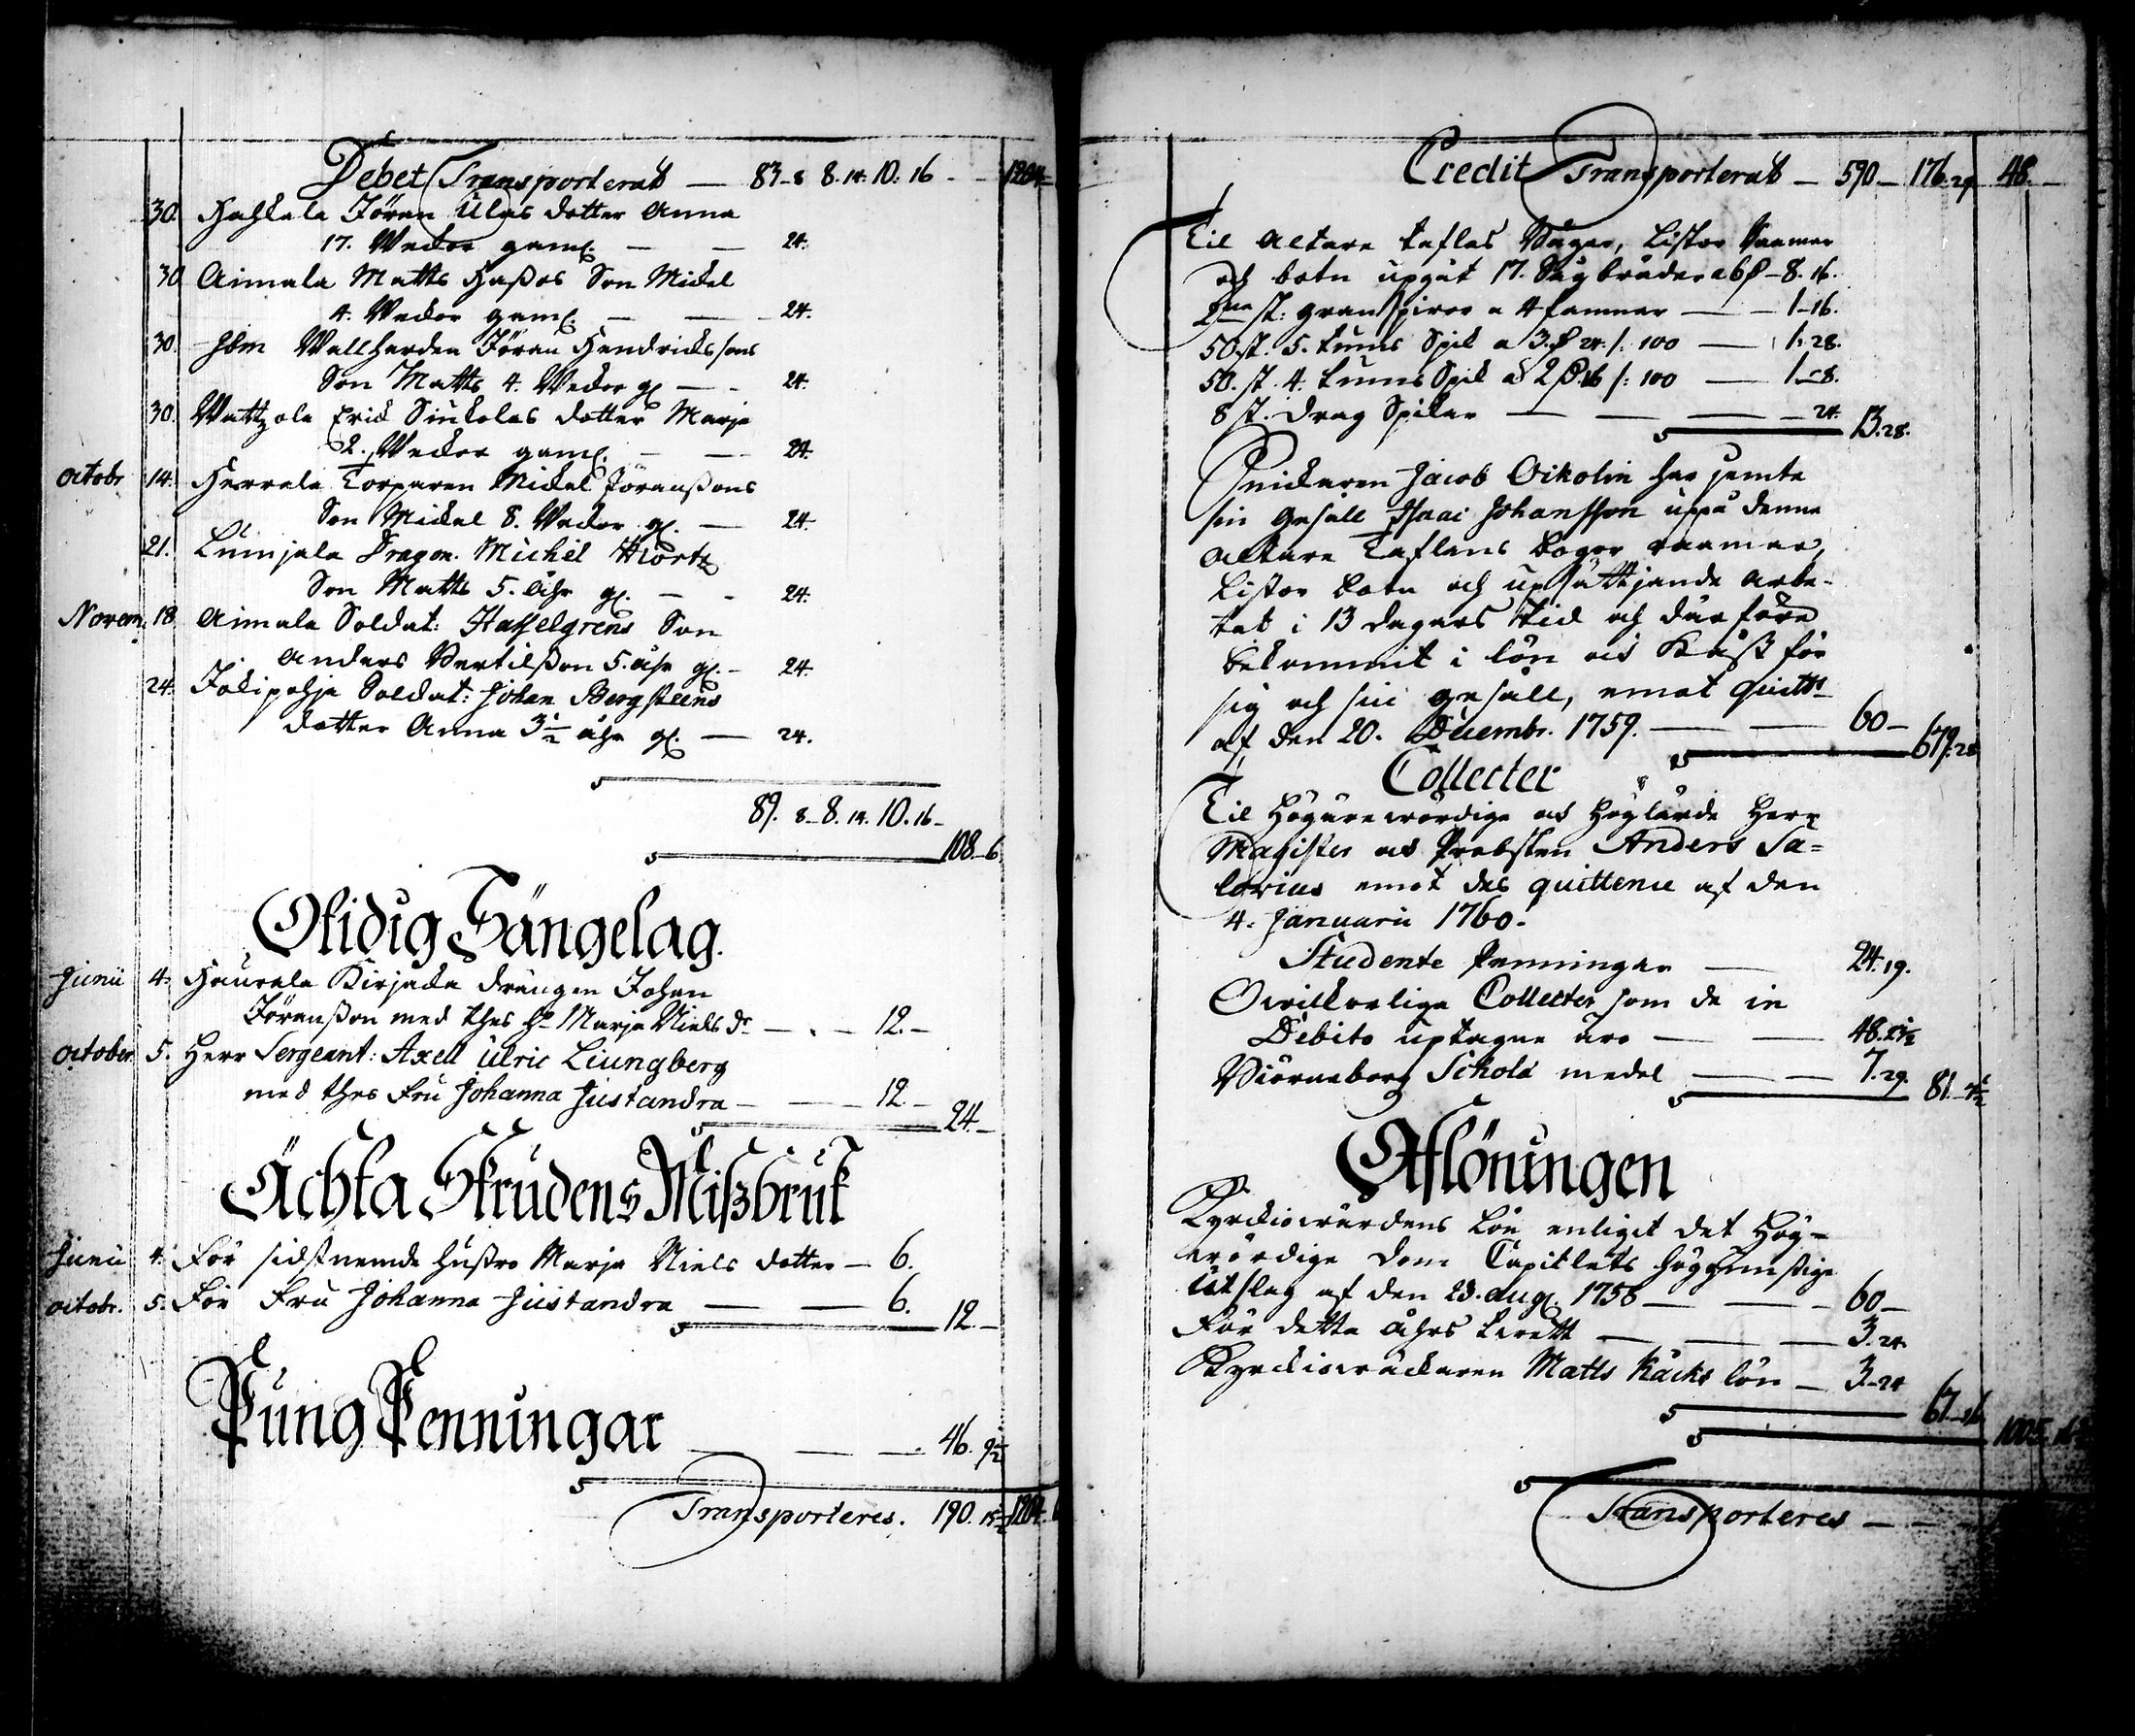 Debet Transporterat — 83 - 8 8. 14. 10. 16 - - 1204
30. Jöran Ulas dotter Anna
17. Weckor gaml. — — 24.
30 Aimala Matts Haßos Son Mickel
4. Weckor gaml. — — 24.
30. Ibm Wallherden Jöran Hendrickssons
Son Matts 4. Weckor gl. — - 24.
30. Erick Sinkolas dotter Marja
2. Weckor gaml. — — 24.
octobr 14. Torparen Mickel Jöranßons
Son Mickel 8. Weckor gl. — 24.
21. Lumjala Dragon. Michel Hiortz
Son Matts 5. åhr gl. — - 24.
Novem. 18. Aimala Soldat: Hasselgrens Son
Anders Bertilßon 5. åhr gl. - 24.
24. Jokipohja Soldat: Johan Bergsteens
dotter Anna 3½ åhr gl. — 24.
89. 8 - 8. 14. 10. 16 -
108 - 6.
Otidig Sängelag.
Junii 4. Haurala Kirjacka drängen Johan
Jöranßon med thes H:o Marja Niels dr — . — 12. —
october 5. Herr Sergeant: Axell Ulric Liungberg
med thes Fru Johanna Justandra — — 12. —
24. —
Ächta Skrudens Mißbruk
Junii 4. För sidstnemde hustro Marja Niels dotter — 6.
octobr. 5. För Fru Johanna Justandra — — 6.
12. —
Pung Penningar — — — 46. 9½
Transporteres. 190. 15½ 1204.
Credit Transporterat — 590 — 176. 29 48. —
Til Altare taflas Bågar, Listor Raamar
och botn upgåt 17. Sågbräder a 6 — 8. 16.
st: gran Spiror a 4 famnar — — 1 - 16.
50 st. 5. tums Spik a 3. 24. /: 100 — 1. 28.
50. st. 4. tums Spik a 2 16 /: 100 — 1 - 8.
8 st. drag Spikar — — — 24. 13. 28.
Snickaren Jacob Oikolin har jemte
sin Gesäll Isaac Johansson uppå denna
Altare Taflans bogar raamar,
Listor botn och upsättjande arbe-
tat i 13 dagars tid och därföre
bekommit i lön och Kåst för
sig och sin gesäll, emot quitt:
af den 20. Decembr. 1759. — — 60 —
679. 28
Collecter
Til Högärewördige och Höglärde Herr
Magister och Probsten Anders Sa=
lovius emot des quittence af den
4. Januarii 1760.
Studente Penningar — 24. 19.
Owilkorlige Collecter som de in
Debito uptagne äro — — 48.
Biörneborg Schola medel — — 7. 29. 81.
Aflöningen
Kyrckiowärdens Lön enligit det Hög-
wördige Dom Capitlets höggunstige
utslag af den 23. aug. 1758 — — - 60 —
För detta åhrs — — — 3. 24.
Kyrckiowäckaren Matts Käcks lön — 3 - 24
67 - 16
1005.
Transporteres — — —